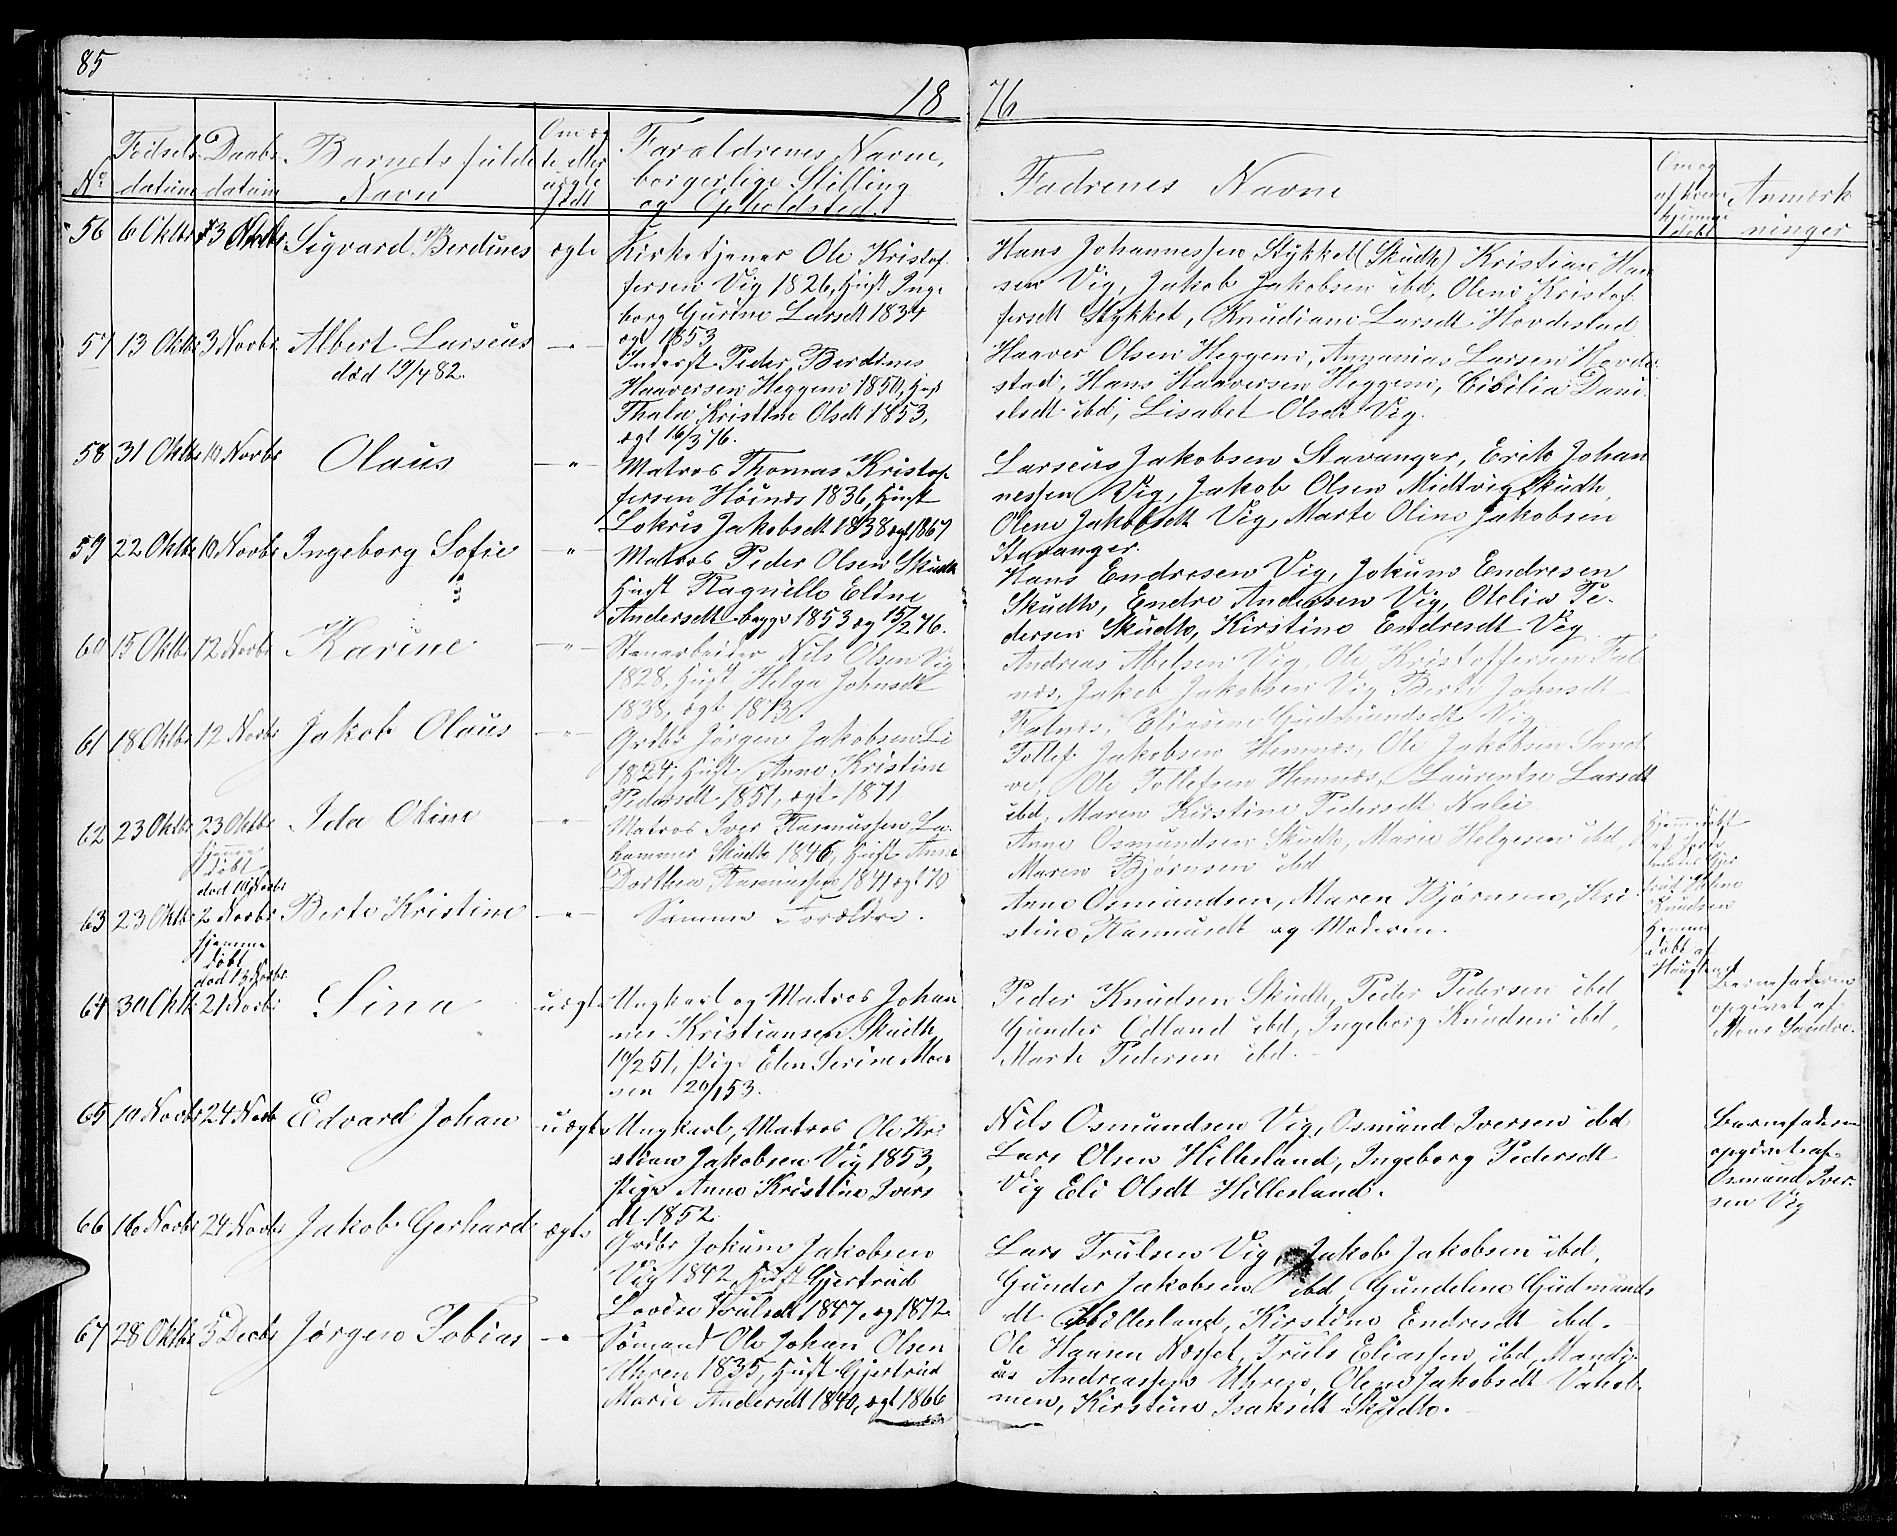 85
18 76
No
Fødsels
datum
Daabs
datum
Barnets fulde
Navn
Om æg
te eller
uægte
født
Foraldrenes Navne,
borgerlige Stilling
og Opholdsted.
Fadrenes Navne
Om og
af hvem
hjemme
døbt
Anmærk
ninger
56 6 Oktbr Sigvard Berdines ægte
Kirketjener Ole Kristof
fersen Vig 1826, Hust Inge
borg Gurine Larsdt 1834
ægt 1853
Hans Johannessen Stykket (Skudh) Kristian Han
sen Vig, Jakob Jakobsen ibd, Olene Kristof
fersdt Stykket, Knudiane Larsdt Hovdestad
57 13 Oktbr 3 Novbr Albert Larseus — " —
død 19/4 82.
Inderst Peder Berdines
Haaversen Heggem 1850, Hust
Thala Kristine Olsdt 1853,
ægt 16/3 76.
Haaver Olsen Heggem, Annanias Larsen Hovde
stad, Hans Haaversen Heggem, Cicilia Dani
elsdt ibd, Lisabet Olsdt Vig.
58 31 Oktbr 10 Novbr Olaus — " —
Matros Thomas Kristof
fersen Høines 1836, Hust
Lokris Jakobsdt 1838 ægt 1867
Larseus Jakobsen Stavanger, Erik Johan
nessen Vig, Jakob Olsen Midtvig Skudh,
Olene Jakobsdt Vig, Marte Oline Jakobsen
Stavanger.
59 22 Oktbr 10 Novbr Ingeborg Sofie — " —
Matros Peder Olsen Skudh
Hust Ragnille Eline
Andersdt begge 1853 æg 15/2 76.
Hans Endresen Vig, Jokum Endresen
Skudh, Endre Andersen Vig, Otelia Pe-
dersen Skudh, Kirstine Endresdt Vig
60 15 Oktbr 12 Novbr Karine — " —
Stenarbeider Nils Olsen Vig
1828, Hust Helga Johnsdt
1838, ægt 1873.
Andreas Abelsen Vig, Ole Kristoffersen Fal
næs, Jakob Jakobsen Vig Berte Johnsdt
Falnæs, Eliasine Gudmundsdt Vig
61 18 Oktbr 12 Novbr Jakob Olaus — " —
Grdbr Jørgen Jakobsen Li
1824, Hust Anne Kristine
Pedersdt 1851, ægt 1871
Tollef Jakobsen Hemnæs, Ole Jakobsen Sand
ve, Ole Tollefsen Hemnæs, Laurentse Larsdt
ibd, Maren Kirstine Pedersdt
62 23 Oktbr 23 Oktbr Ida Oline — " —
hjemme
døbt
død 10 Novbr
Matros Iver Rasmussen La
hammer Skudh 1846, Hust Anne
Dorthea Rasmussen 1841 ægt 70
Anne Osmundsen Skudh, Marie Helgesen ibd,
Maren Bjørnsen ibd
Hjemmedøbt
af
Knudsen
63 23 Oktbr 2 Novbr Berte Kristine — " —
hjemme
døbt
død 13 Novbr
Samme Forældre.
Anne Osmundsen, Maren Bjørnsen, Kri
stine Rasmusdt og Moderen.
Hjemme
døbt af
64 30 Oktbr 21 Novbr Sina uægte
Ungkarl og Matros Johan
nes Kristiansen Skudh
19/2 51, Pige Elen Serine Mon
sen 20/1 53.
Peder Knudsen Skudh, Peder Pedersen ibd
Gunder Edland ibd, Ingeborg Knudsen ibd,
Marte Pedersen ibd.
Barnefaderen
opgivet af
Mons Sandve.
65 10 Novbr 24 Novbr Edvard Johan uægte
Ungkarl, Matros Ole Kri
stian Jakobsen Vig 1853,
Pige Anne Kristine Ivers
dt 1852.
Nils Osmundsen Vig, Osmund Iversen ibd
Lars Olsen Hillesland, Ingeborg Pedersdt
Vig Eli Olsdt Hillesland.
Barnefaderen
opgivet af
Osmund Iver
sen Vig
66 16 Novbr 24 Novbr Jakob Gerhard ægte
Grdbr Jokum Jakobsen
Vig 1842, Hust Gjertrud
Lovise Trulsdt 1847, æg 1872
Lars Trulsen Vig, Jakob Jakobsen ibd,
Gunder Jakobsen ibd Gundeline Gudmunds
dt Hillesland, Kirstine Endresdt ibd.
67 28 Oktbr 5 Decbr Jørgen Tobias — " —
Sømand Ole Johan Olsen
Uhren 1835, Hust Gjertrud
Marie Andersdt 1840, ægt 1866
Ole Hansen Næsset, Truls Eliassen ibd, Mandi-
us Andreassen Uhren, Olene Jakobsdt Vahol-
men, Kirstine Isaksdt Skudh.